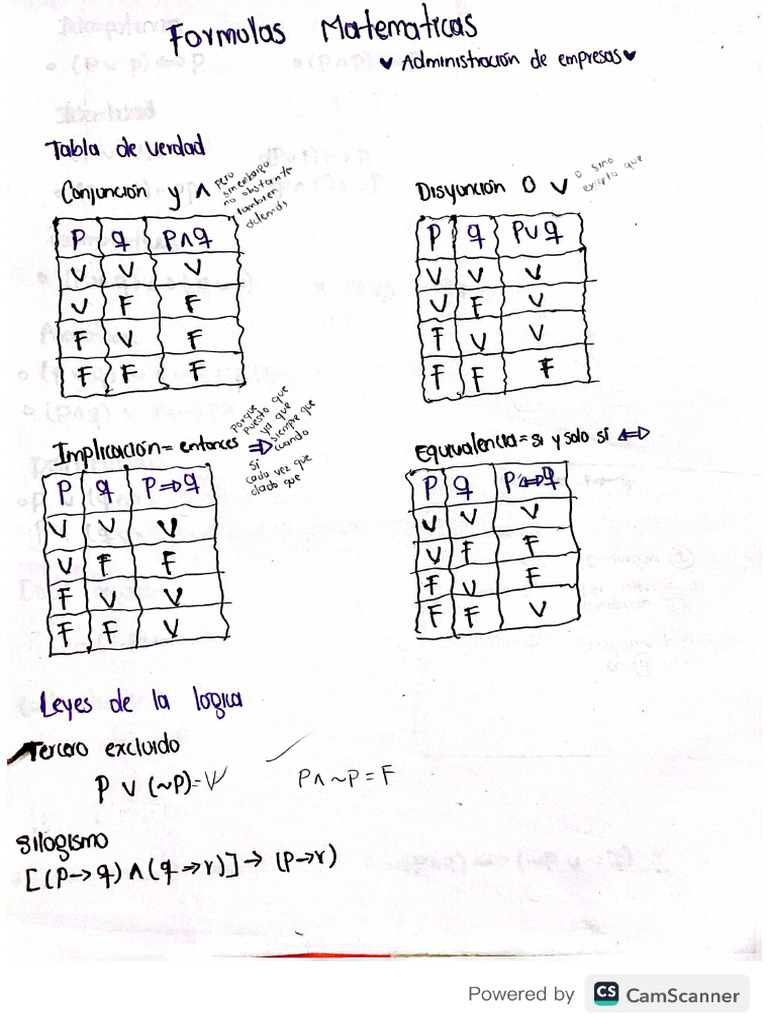 Formulas Matematicas
♥ Administración de empresas ♥
Tabla de verdad
Conjunción y ∧ pero
sin embargo
no obstante
tambien
además
P q P∧q
V V V
V F F
F V F
F F F
Disyunción O ∨ o sino
excepto que
P q P∪q
V V V
V F V
F V V
F F F
Implicación = entonces ⇒
porque
puesto que
ya que
siempre que
cuando
si
cada vez que
dado que
P q P⇒q
V V V
V F F
F V V
F F V
Equivalencia = si y solo sí ⇔
P q P⇔q
V V V
V F F
F V F
F F V
Leyes de la logica
Tercero excluido
P ∨ (~P) = V
P ∧ ~P = F
silogismo
[(P→q) ∧ (q→r)] → (p→r)
Powered by CS CamScanner